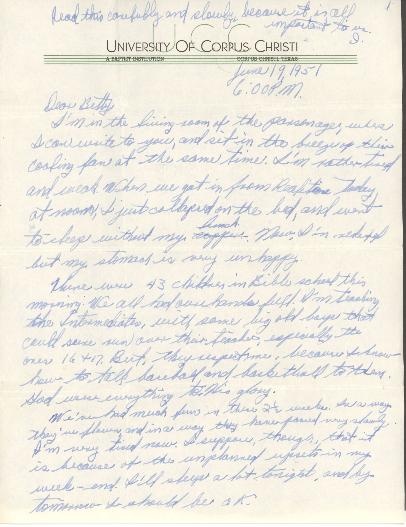 Read this carefully and slowly, because it is all
important to us.
I.
1
UNIVERSITY OF CORPUS CHRISTI
A BAPTIST INSTITUTION CORPUS CHRISTI, TEXAS
June 19, 1951
6:00 P.M.
Dear Betty,
I'm in the living room of the parsonage, where
I can write to you, and sit in the breeze of this
cooling fan at the same time. I'm rather tired
and weak. When we got in from today
at noon, I just collapsed on the bed, and went
to sleep without my lunch. Now, I'm rested
but my stomach is very unhappy.
There were 43 children in Bible school this
morning. We all had our hands full. I'm teaching
the Intermediates, with some big old boys that
could some run over their teacher, especially the
ones 16 & 17. But, they respect me, because I know
how to talk baseball and basketball to them.
God wove everything to His glory.
We've had much fun in these 2½ weeks. In a way
they've flown, and in a way they have passed very slowly.
I'm very tired now. I suppose, though, that it
is because of the unplanned upsets in my
week-end. I'll sleep a lot tonight, and by
tomorrow I should be O.K.